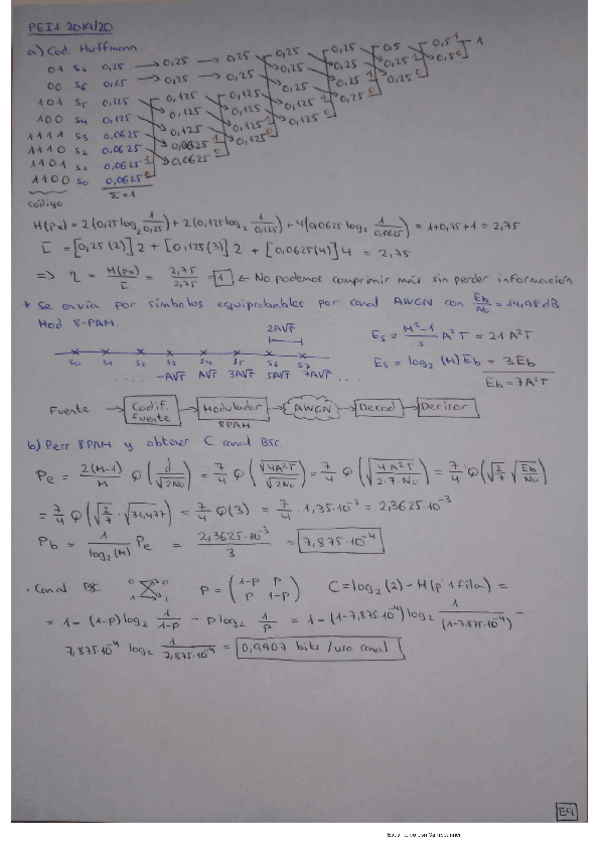 PEI1 2019/20
a) Cod. Huffmann
01 S7 0,25 → 0,25 → 0,25 0,25 0,25 0,5 0,5 1 1
00 S6 0,25 → 0,25 → 0,25 0,25 0,25 0,25 1 0,5 0
101 S5 0,125 0,125 0,125 0,125 0,25 1 0,25 0
100 S4 0,125 0,125 0,125 0,125 1 0,25 0
1111 S3 0,0625 0,125 0,125 1 0,125 0
1110 S2 0,0625 0,0625 1 0,125 0
1101 S1 0,0625 1 0,0625 0
1100 S0 0,0625 0
código Σ=1
H(px) = 2(0,25 log2 1/0,25) + 2(0,125 log2 1/0,125) + 4(0,0625 log2 1/0,0625) = 1+0,75+1 = 2,75
L̄ = [0,25(2)] 2 + [0,125(3)] 2 + [0,0625(4)] 4 = 2,75
⇒ η = H(px)/L̄ = 2,75/2,75 = 1 ← No podemos comprimir más sin perder información
* Se envía por símbolos equiprobables por canal AWGN con Eb/No = 14,98 dB
Mod 8-PAM.
2A√T
S0 S1 S2 S3 S4 S5 S6 S7
..... -A√T A√T 3A√T 5A√T 7A√T ...
Es = M²-1/3 A²T = 21 A²T
Es = log2(M) Eb = 3Eb
Eb = 7A²T
Fuente → Codif. fuente → Modulador → AWGN → Decod → Decisor
8PAM
b) Perr 8PAM y obtener C canal BSC.
Pe = 2(M-1)/M Q(d/√2No) = 7/4 Q(√4A²T/√2No) = 7/4 Q(√(4A²T/2·7·No)) = 7/4 Q(√(2/7) √(Eb/No))
= 7/4 Q(√(2/7) · √31,477) = 7/4 Q(3) = 7/4 · 1,35·10⁻³ = 2,3625·10⁻³
Pb = 1/log2(M) Pe = 2,3625·10⁻³/3 = 7,875·10⁻⁴
· Canal BSC 0 0 1 1 P = (1-p p p 1-p) C = log2(2) - H(p 1 fila) =
= 1 - (1-p) log2 1/1-p - p log2 1/p = 1 - (1-7,875·10⁻⁴) log2 1/(1-7,875·10⁻⁴) -
7,875·10⁻⁴ log2 1/7,875·10⁻⁴ = 0,9907 bits/uso canal
E4